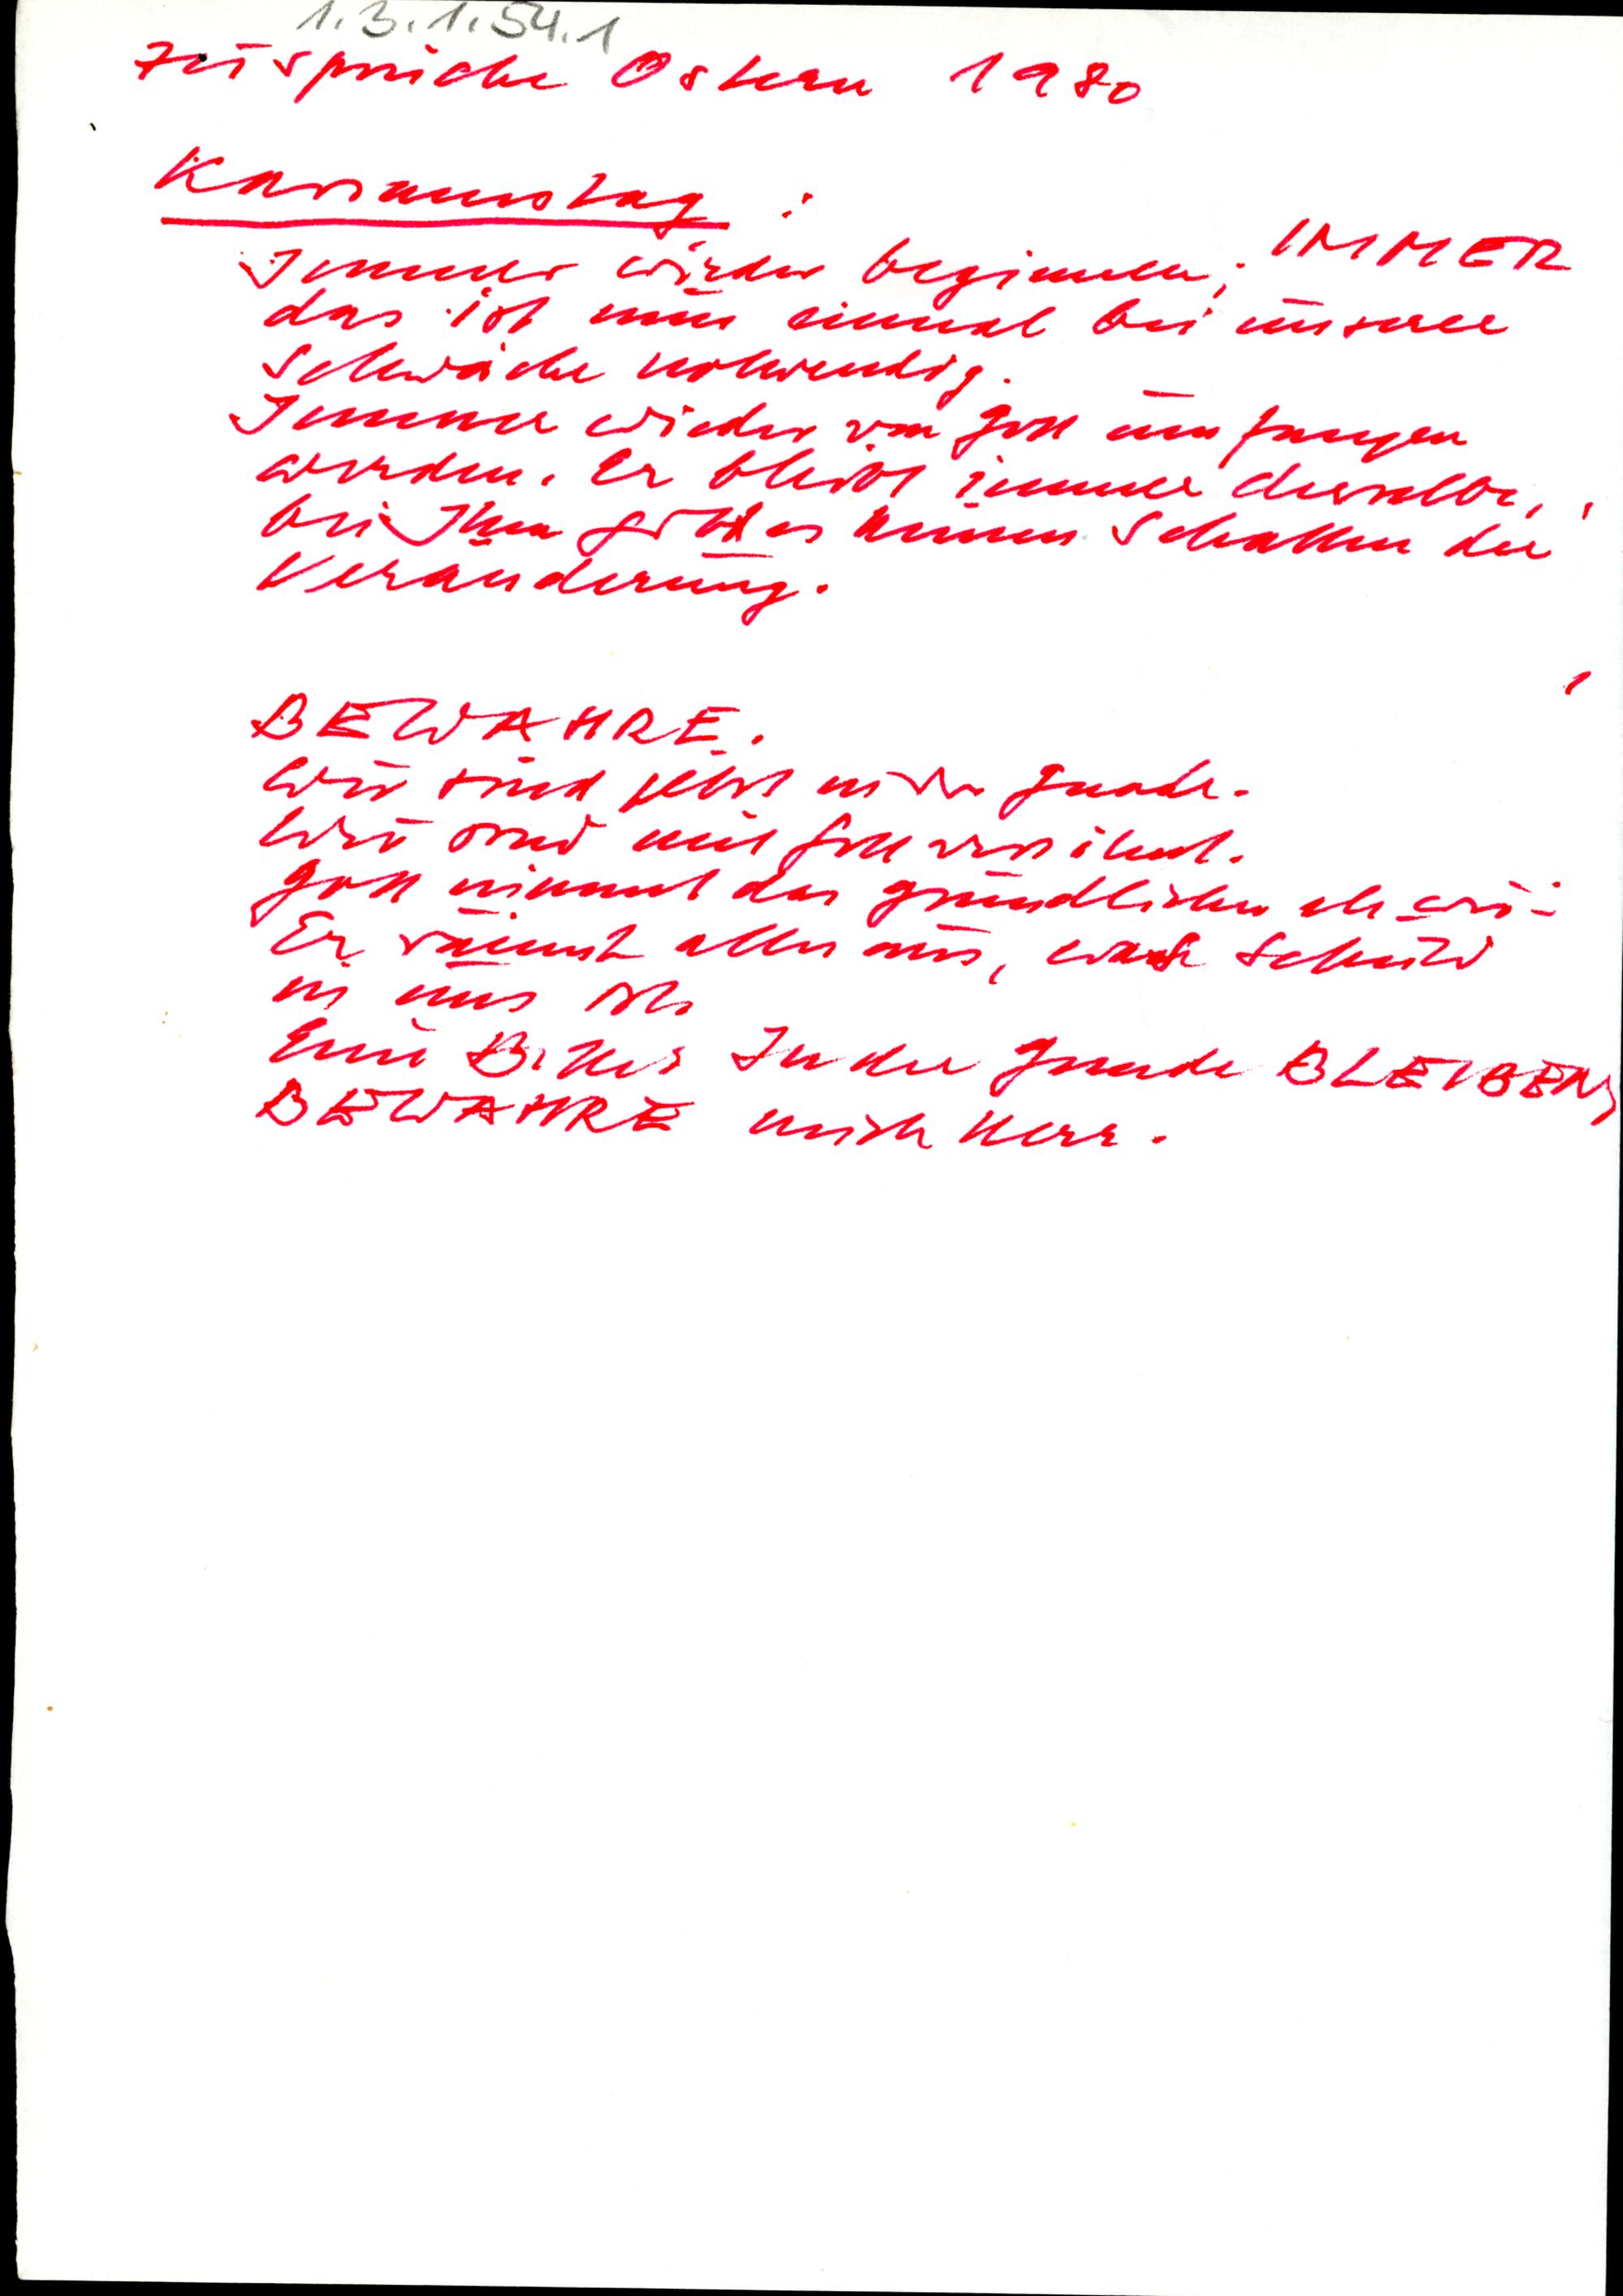 1.3.1.54.1
Zusprüche Ostern 1980
Karsamstag :
Immer wieder beginnen; IMMER
das ist nun einmal bei unserer
Schwäche notwendig.
Immer wieder von Gott umfangen
werden. Er bleibt immer derselbe,
bei Ihm gibt es keinen Schatten der
Veränderung.
BEWAHRE.
Wir sind jetzt in der Gnade.
Wir sind mit Gott versöhnt.
Gott nimmt das gründlicher als wir -
Er räumt alles aus, was Schuld
in uns ist.
Eine Bitte: In der Gnade BLEIBEN,
BEWAHRE mich Herr.